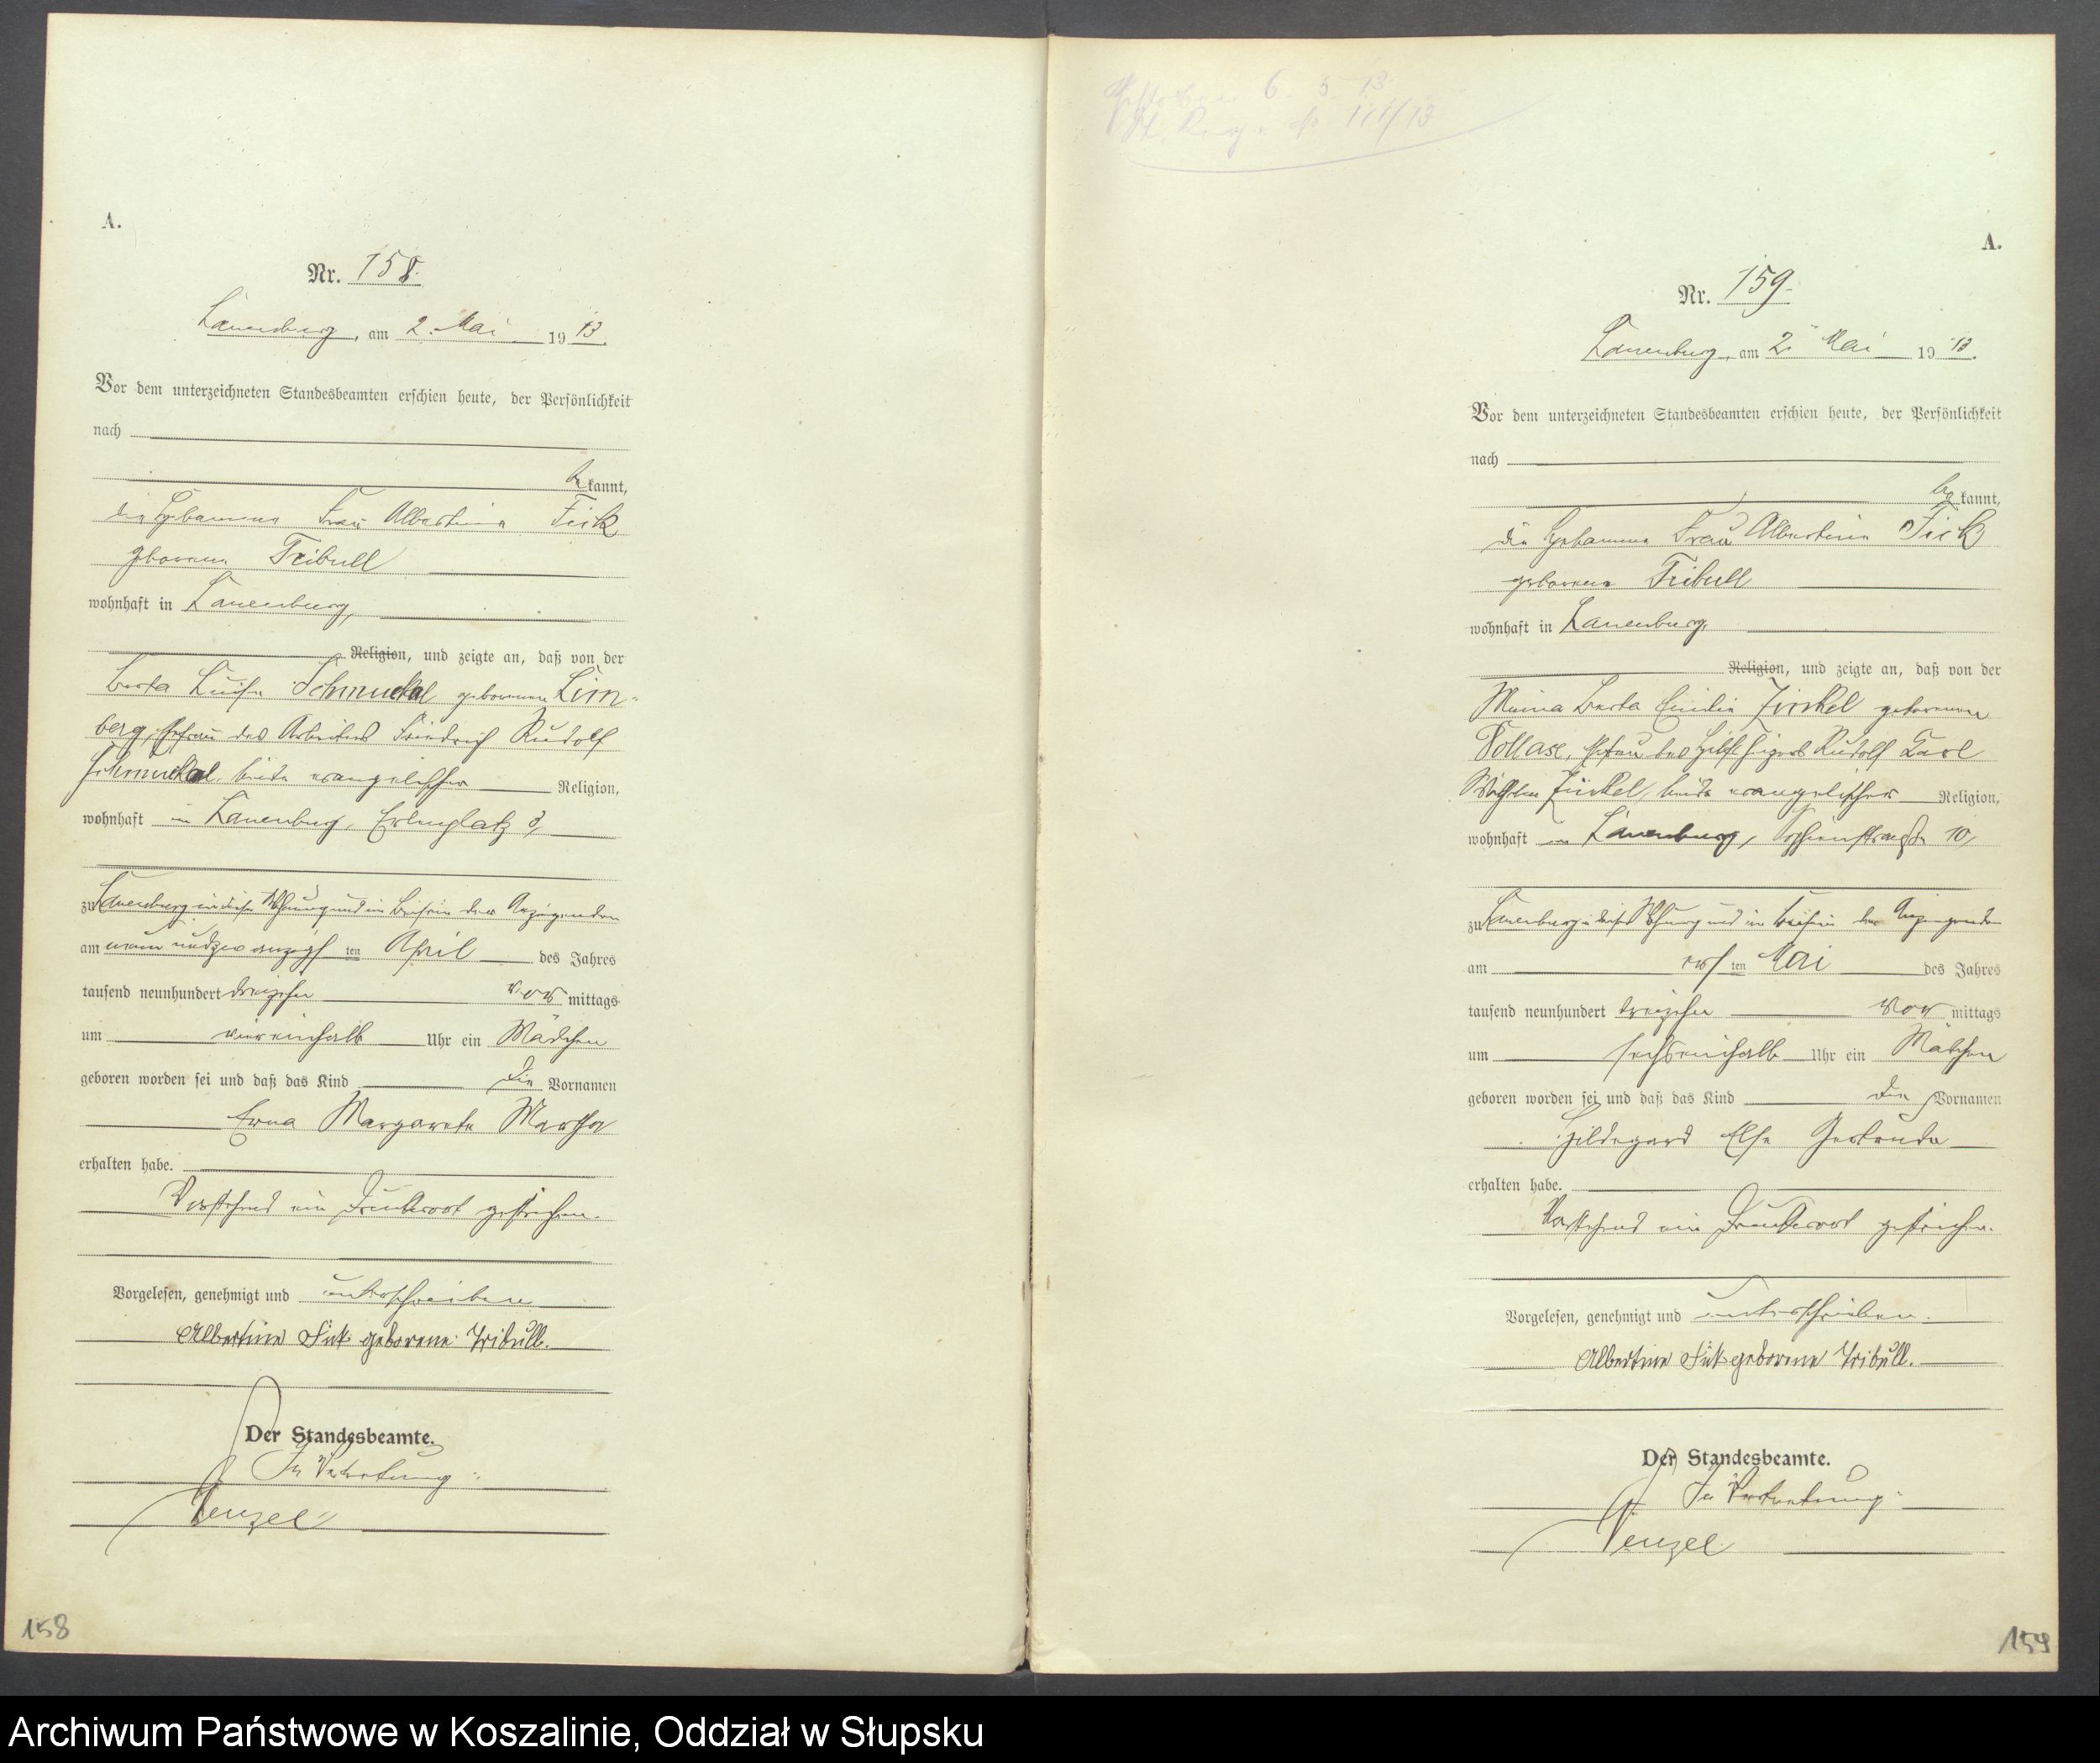 A.
Nr. 158.
Lauenburg, am 2. Mai 1913.
Vor dem unterzeichneten Standesbeamten erschien heute, der Persönlichkeit
nach
be kannt,
die Hebamme Frau Albertine Fick
geborene Tribull
wohnhaft in Lauenburg,
Religion, und zeigte an, daß von der
Berta Luise Schmuckal geborenen Lim-
berg, Ehefrau des Arbeiters Friedrich Rudolf
Schmuckal, beide evangelischer Religion,
wohnhaft in Lauenburg,
zu Lauenburg in dieser Wohnung und in Beisein der Anzeigenden
am neunundzwanzigsten April des Jahres
tausend neunhundert dreizehn vor mittags
um viereinhalb Uhr ein Mädchen
geboren worden sei und daß das Kind die Vornamen
Erna Margarete Martha
erhalten habe.
Vorstehend ein Druckwort gestrichen.
Vorgelesen, genehmigt und unterschrieben
Albertine Fick geborene Tribull.
Der Standesbeamte.
In Vertretung:
Wenzel
158
Gestorben 6. 5. 13
St. Reg.
A.
Nr. 159.
Lauenburg, am 2. Mai 1913.
Vor dem unterzeichneten Standesbeamten erschien heute, der Persönlichkeit
nach
be kannt,
die Hebamme Frau Albertine Fick
geborene Tribull
wohnhaft in Lauenburg,
Religion, und zeigte an, daß von der
Berta Emilie geborenen
Pollase, Ehefrau des Rudolf Karl
Wilhelm beide evangelischer Religion,
wohnhaft in Lauenburg, 10,
zu Lauenburg in dieser Wohnung und in Beisein der Anzeigenden
am ersten Mai des Jahres
tausend neunhundert dreizehn vor mittags
um sechseinhalb Uhr ein Mädchen
geboren worden sei und daß das Kind die Vornamen
Hildegard Else Gertrude
erhalten habe.
Vorstehend ein Druckwort gestrichen.
Vorgelesen, genehmigt und unterschrieben.
Albertine Fick geborene Tribull.
Der Standesbeamte.
In Vertretung:
Wenzel
159
Archiwum Państwowe w Koszalinie, Oddział w Słupsku